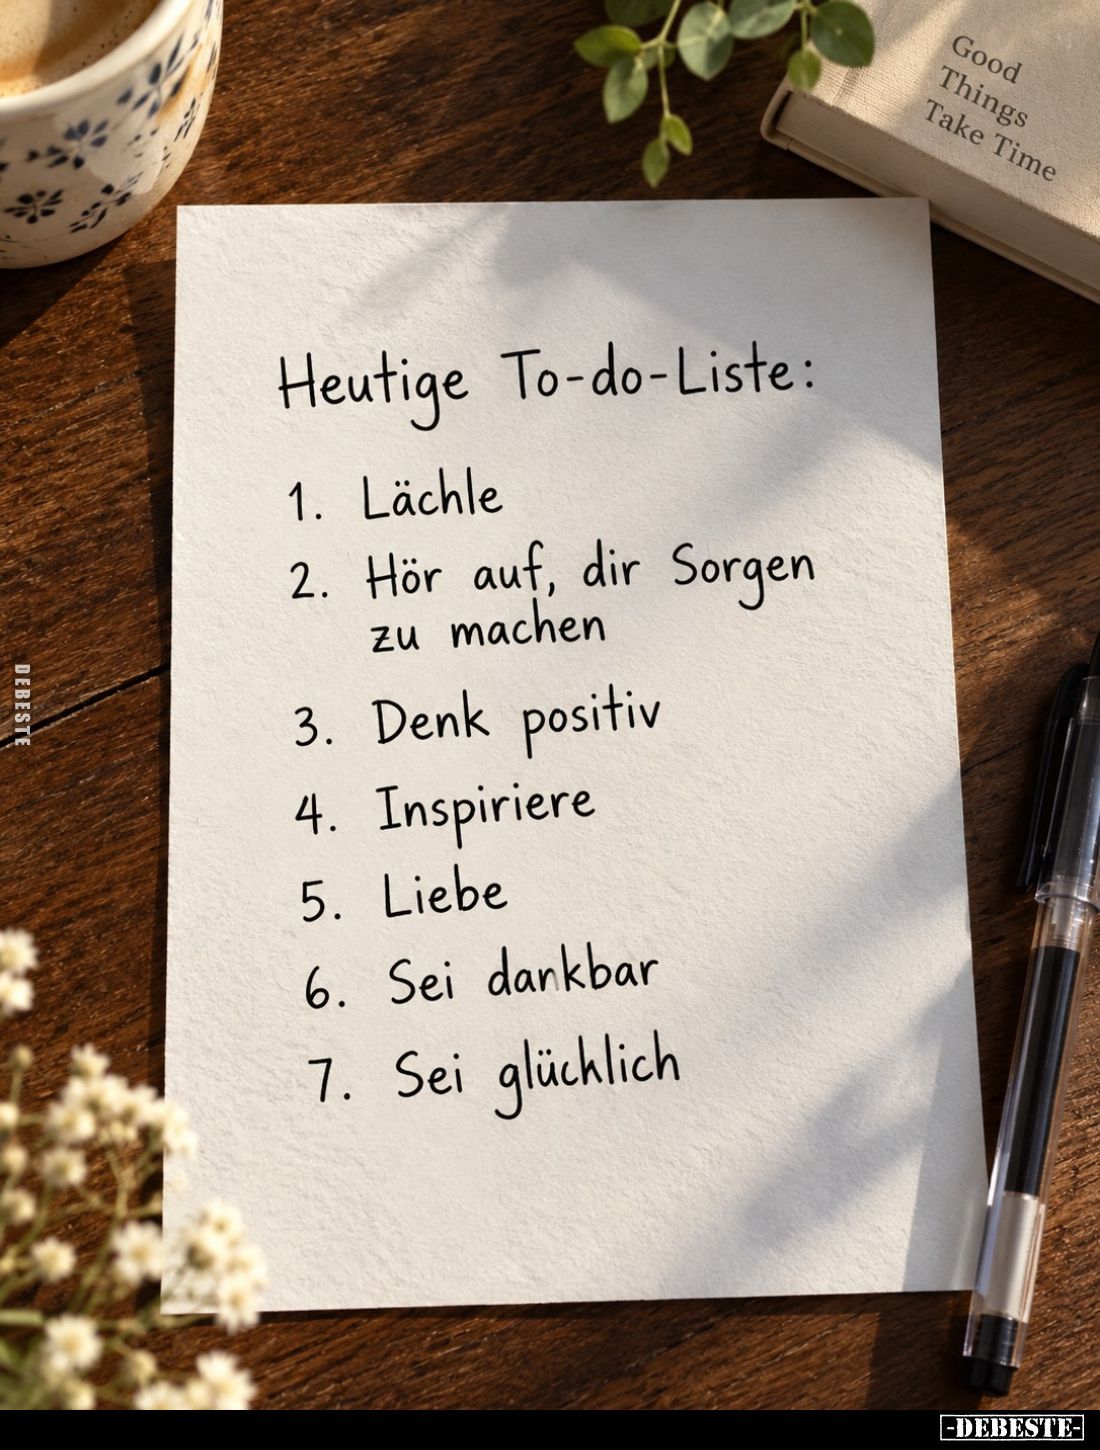 Good
Things
Take Time
Heutige To-do-Liste:
1. Lächle
2. Hör auf, dir Sorgen
zu machen
3. Denk positiv
4. Inspiriere
5. Liebe
6. Sei dankbar
7. Sei glücklich
DEBESTE
-DEBESTE-